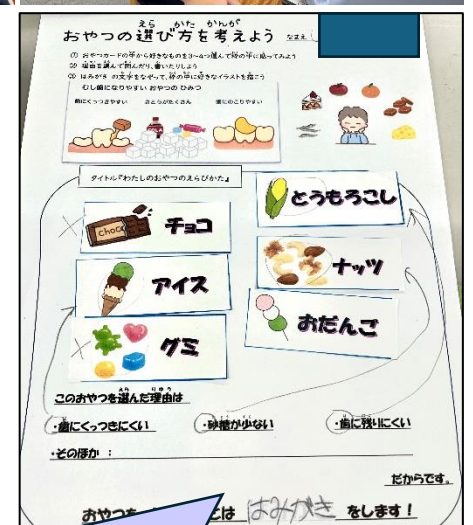 おやつの選び方を考えよう なまえ
えら かた かんが
① おやつカードの中から好きなものを3~4つ選んで枠の中に貼ってみよう
② 理由を選んで囲んだり、書いたりしよう
③ はみがき の文字をなぞって、枠の中に好きなイラストを描こう
むし歯になりやすい おやつの ひみつ
歯にくっつきやすい さとうがたくさん 歯にのこりやすい
タイトル『わたしのおやつのえらびかた』
とうもろこし
choco
チョコ
ナッツ
アイス
おだんご
グミ
このおやつを選んだ理由は
・歯にくっつきにくい ・砂糖が少ない ・歯に残りにくい
・そのほか :
だからです。
おやつを
とは はみがき をします!